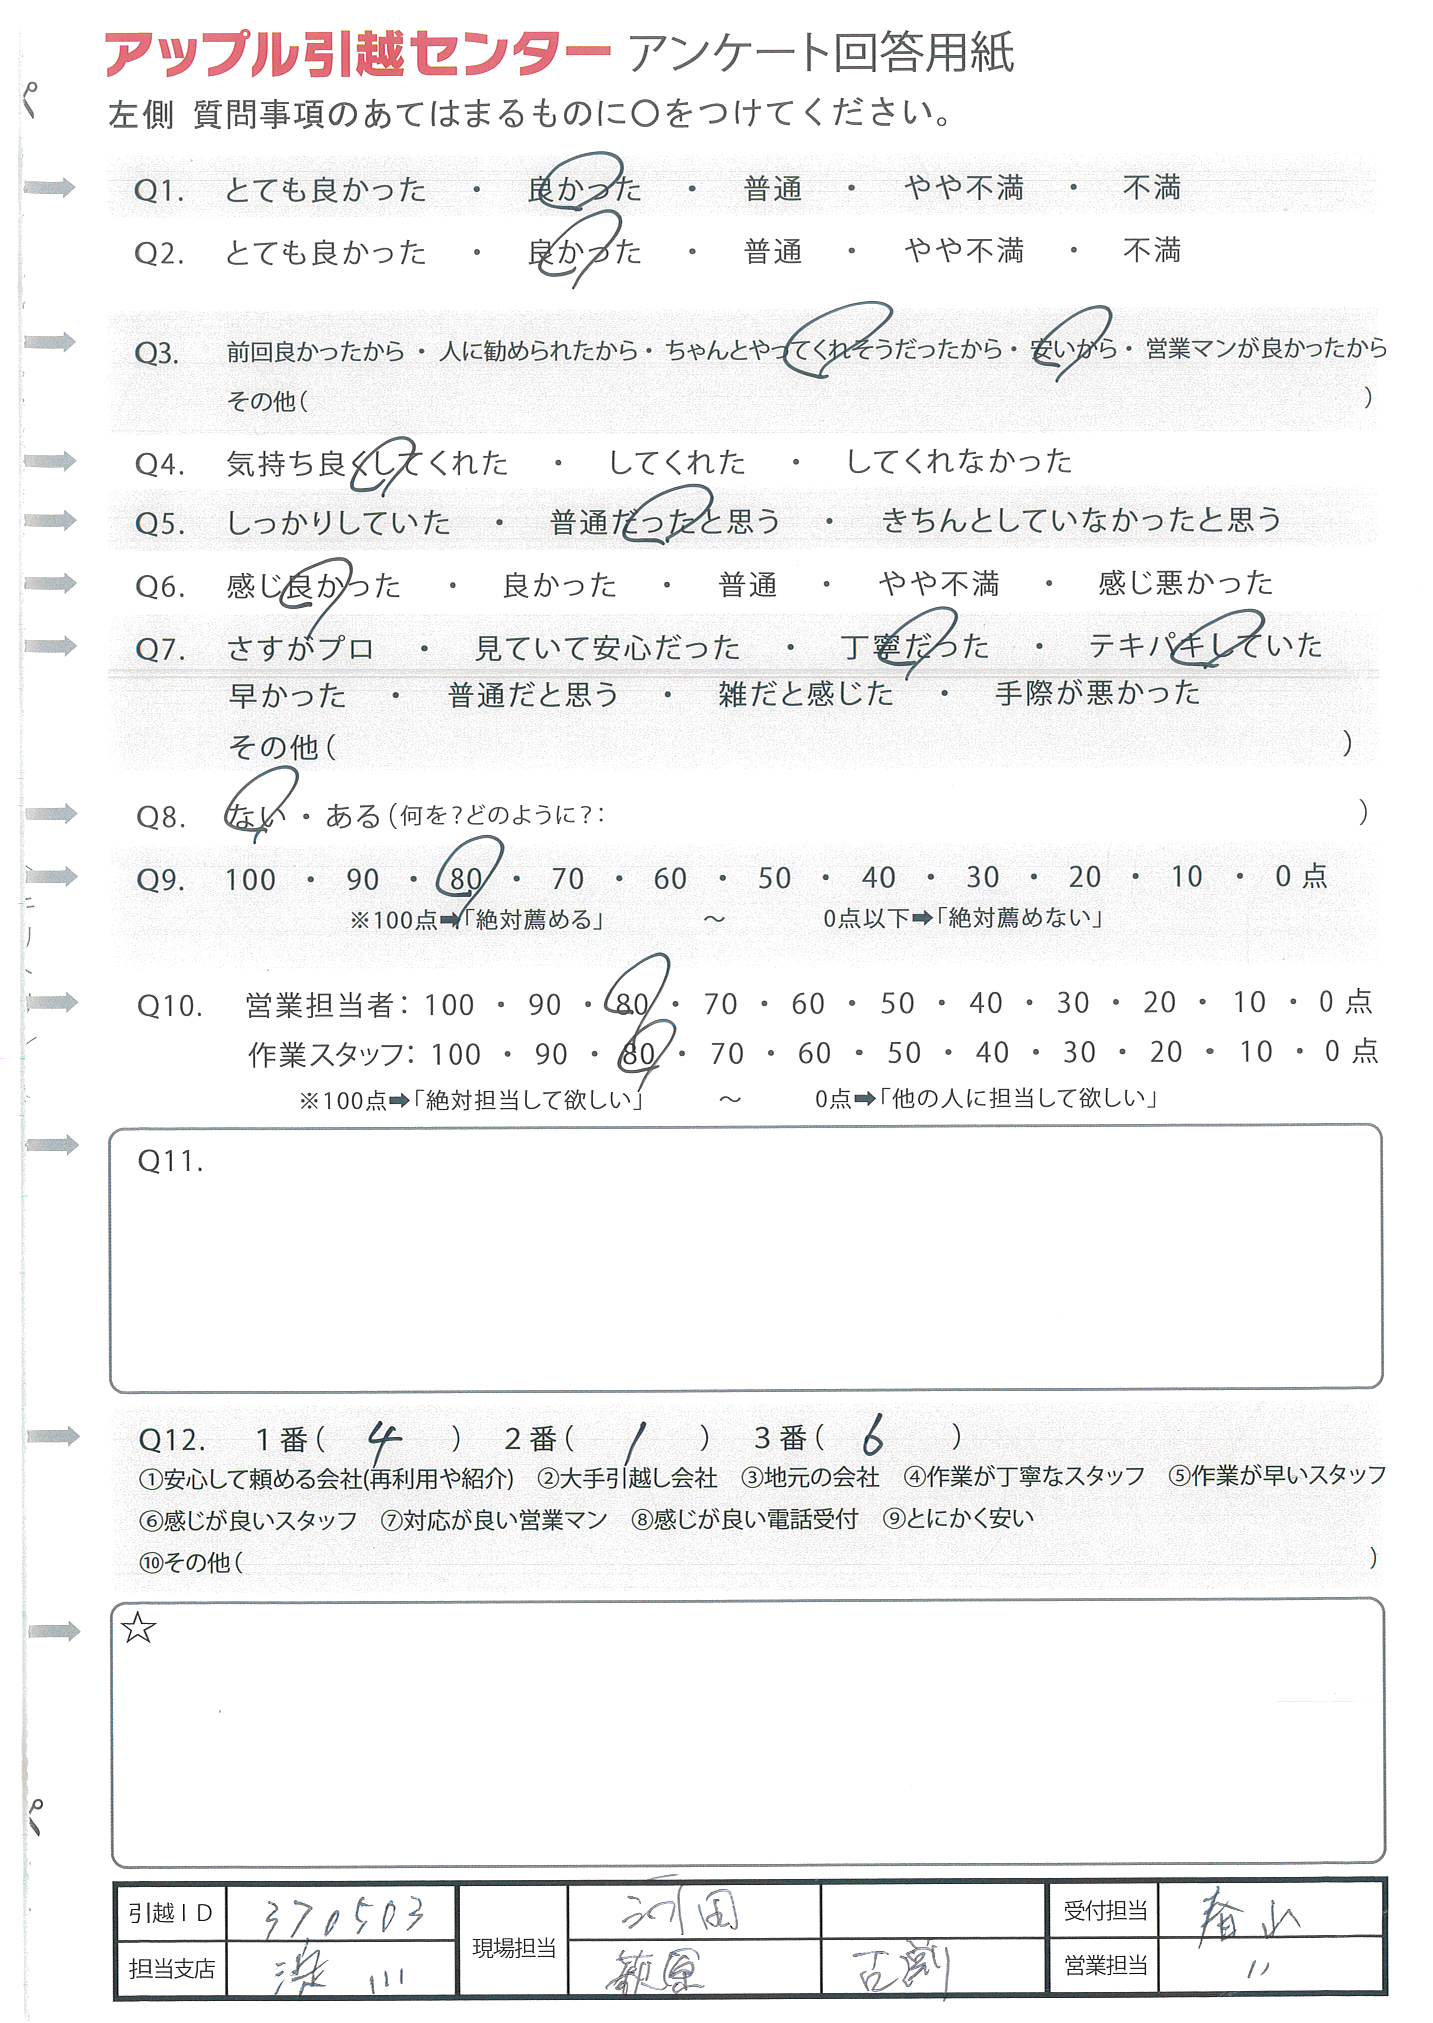 アップル引越センター アンケート回答用紙
左側 質問事項のあてはまるものに〇をつけてください。
Q1. とても良かった ・ 良かった ・ 普通 ・ やや不満 ・ 不満
Q2. とても良かった ・ 良かった ・ 普通 ・ やや不満 ・ 不満
Q3. 前回良かったから ・ 人に勧められたから ・ ちゃんとやってくれそうだったから ・ 安いから ・ 営業マンが良かったから
その他( )
Q4. 気持ち良くしてくれた ・ してくれた ・ してくれなかった
Q5. しっかりしていた ・ 普通だったと思う ・ きちんとしていなかったと思う
Q6. 感じ良かった ・ 良かった ・ 普通 ・ やや不満 ・ 感じ悪かった
Q7. さすがプロ ・ 見ていて安心だった ・ 丁寧だった ・ テキパキしていた
早かった ・ 普通だと思う ・ 雑だと感じた ・ 手際が悪かった
その他( )
Q8. ない ・ ある(何を?どのように?: )
Q9. 100 ・ 90 ・ 80 ・ 70 ・ 60 ・ 50 ・ 40 ・ 30 ・ 20 ・ 10 ・ 0 点
※100点➡「絶対薦める」 ～ 0点以下➡「絶対薦めない」
Q10. 営業担当者: 100 ・ 90 ・ 80 ・ 70 ・ 60 ・ 50 ・ 40 ・ 30 ・ 20 ・ 10 ・ 0 点
作業スタッフ: 100 ・ 90 ・ 80 ・ 70 ・ 60 ・ 50 ・ 40 ・ 30 ・ 20 ・ 10 ・ 0 点
※100点➡「絶対担当して欲しい」 ～ 0点➡「他の人に担当して欲しい」
Q11.
Q12. 1番( 4 ) 2番( 1 ) 3番( 6 )
①安心して頼める会社(再利用や紹介) ②大手引越し会社 ③地元の会社 ④作業が丁寧なスタッフ ⑤作業が早いスタッフ
⑥感じが良いスタッフ ⑦対応が良い営業マン ⑧感じが良い電話受付 ⑨とにかく安い
⑩その他( )
☆
引越ID 370503 現場担当 河田 受付担当 春山
担当支店 営業担当 〃